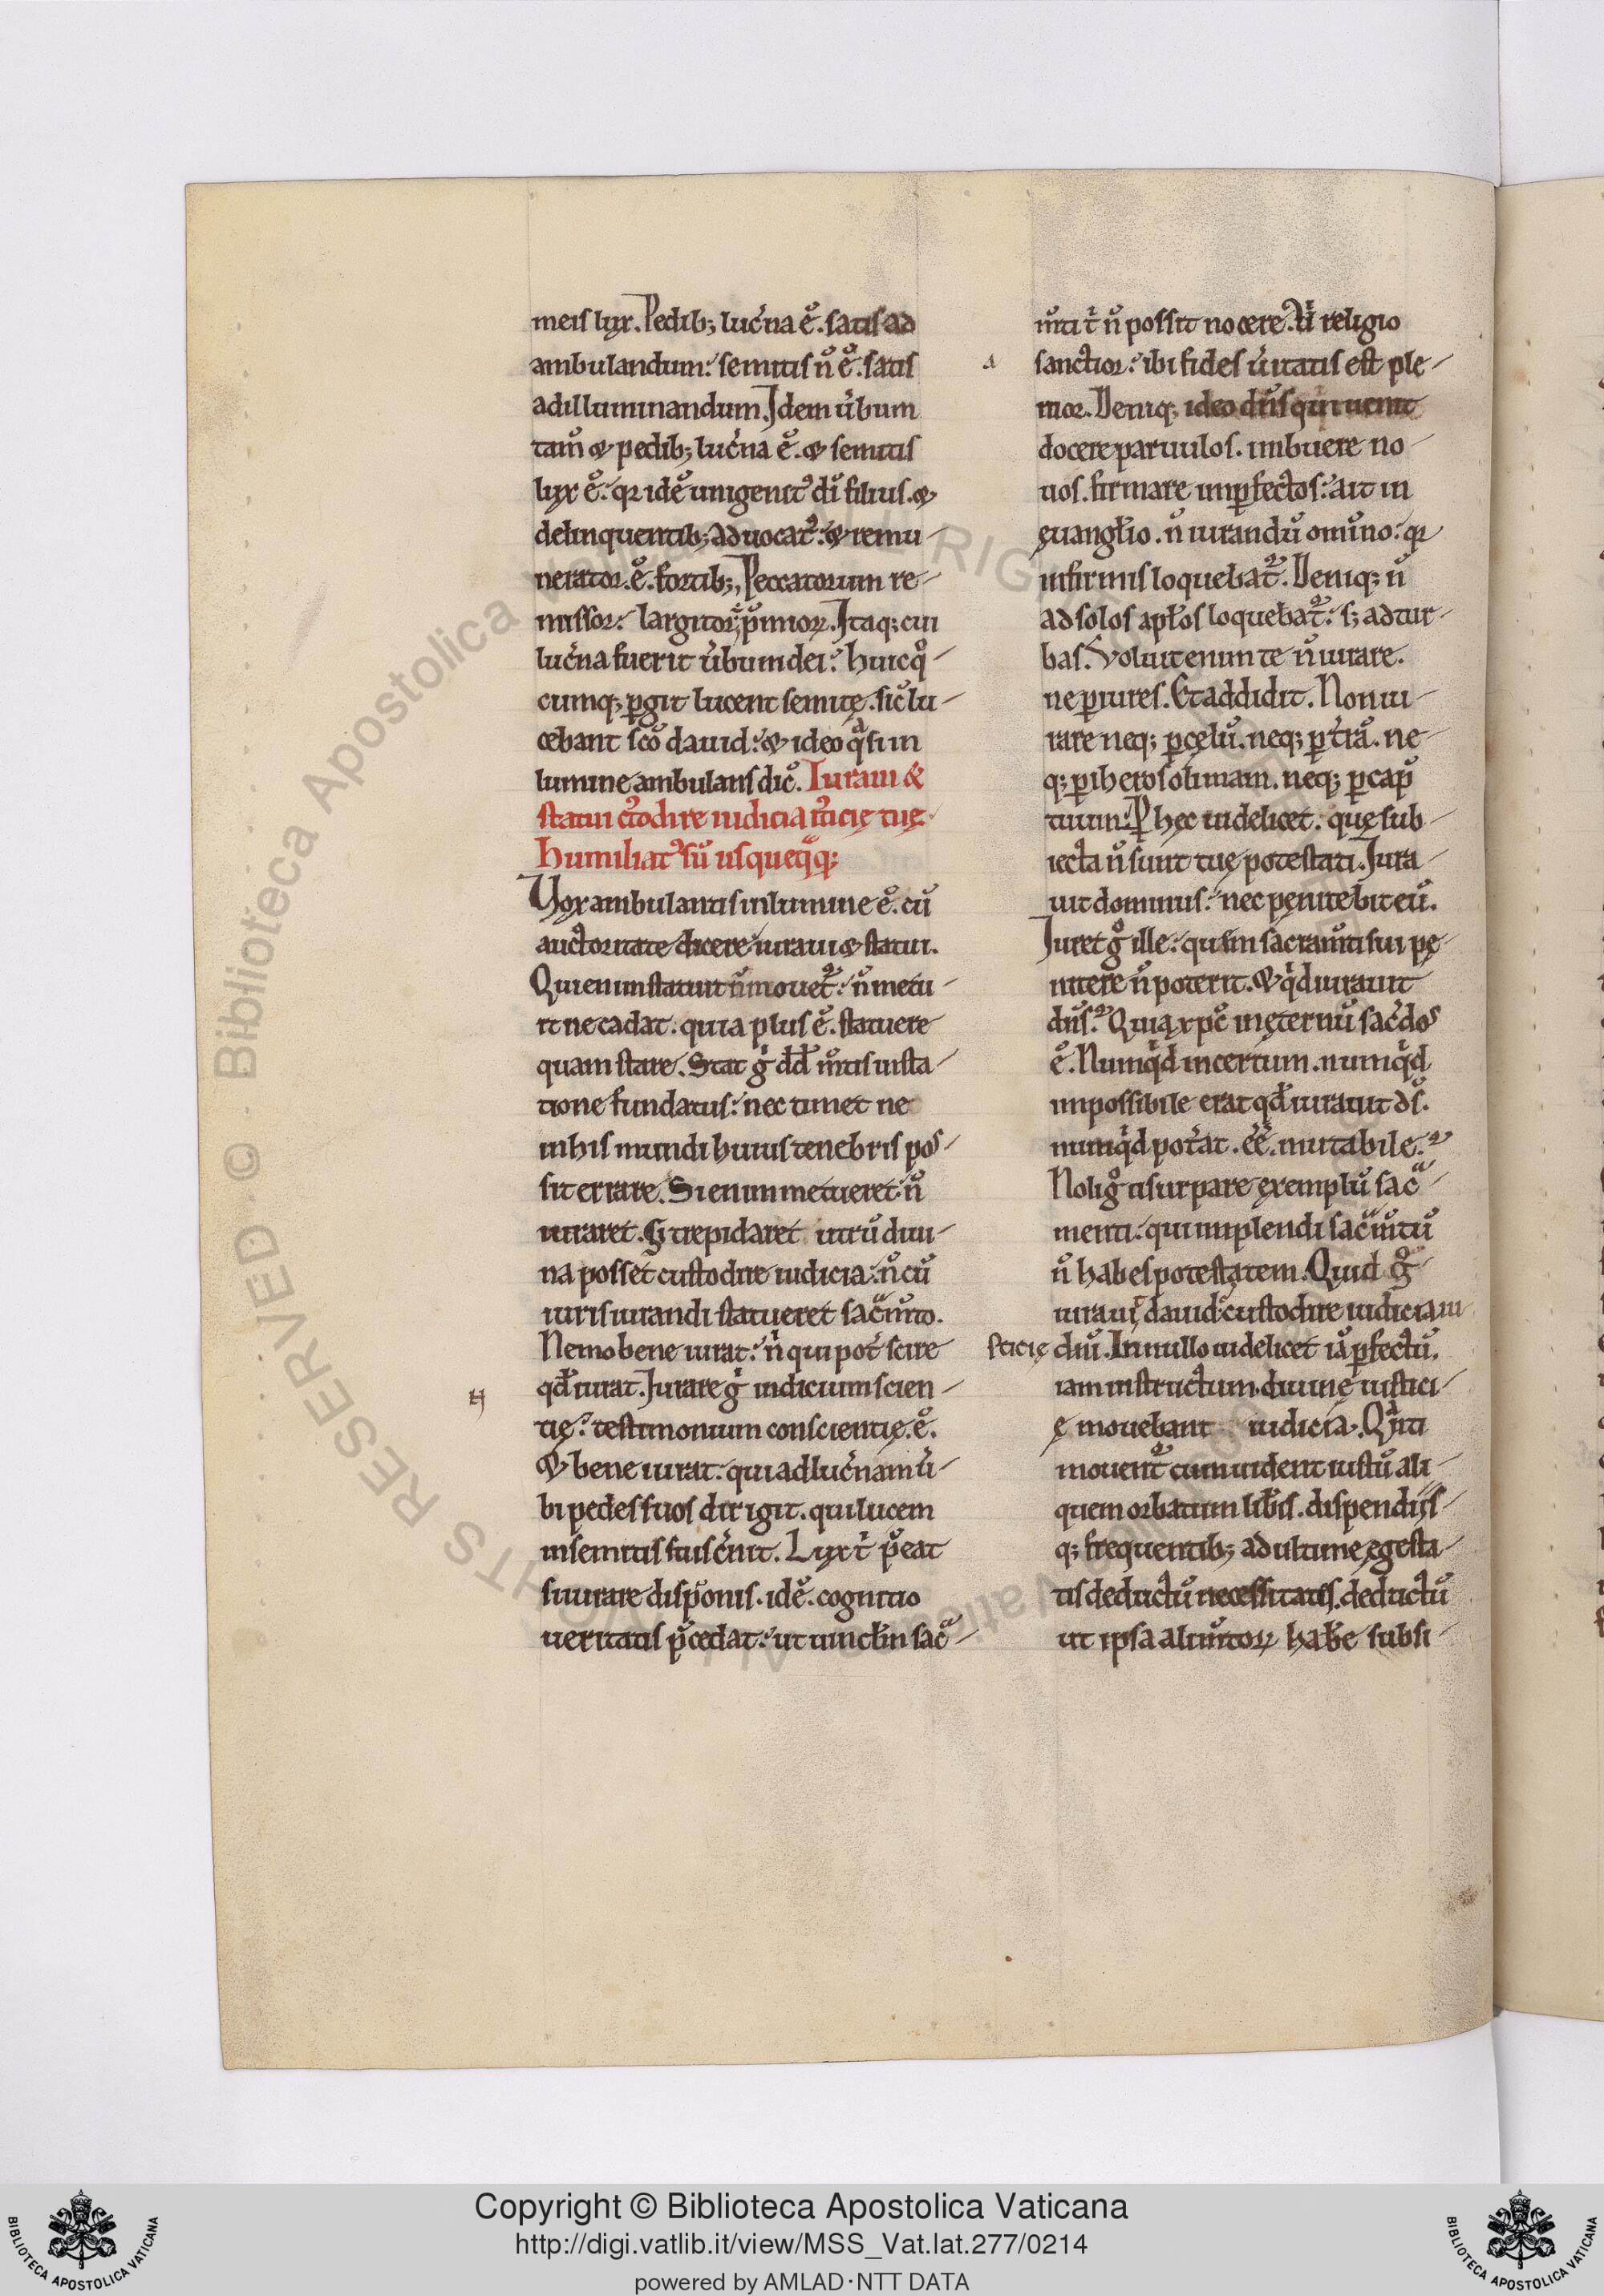 meis lux. Pedib; luc̓na ē. satis ad
ambulandum: semitis n̄ ē. satis
ad illuminandum. Idem ūbum
tam̄ & pedib; luc̓na ē. & semitis
lux ē. qr idē unigenit᷒ dī filius. &
delinquentib; aduocat᷒: & remu-
nerator. ē. fortib;, Peccatorum re-
missor: largitor; p̄mioꝝ. Itaq; cui
luc̓na fuerit ūbum dei: huic q°-
cumq; ꝑgit lucent semitę. sic lu-
cebant sc̄o dauid: & ideo qᵃsi in
lumine ambulans dic̄. Iuraui &
statui c᷒todire iudicia i᷒ticię tuę.
Humiliat᷒ sū usqueqᵃq;
Vox ambulantis in lumine ē. cū
auctoritate dicere iuraui & statui.
Qui enim statuit n̄ mouet᷑: n̄ metu-
it ne cadat. quia plus ē. statuere
quam stare. Stat gⁱ dd̄ m̄tis iusta-
tione fundatus: nec timet ne
in his mundi huius tenebris pos-
sit errare. Si enim metueret n̄
iuraret. Si trepidaret utrū diui-
na posset custodire iudicia: n̄ cū
iurisiurandi statueret sac̄m̄to.
Nemo bene iurat: nⁱ qui pot̓ scire
qd̄ iurat. Iurare gⁱ iudicium scien-
tię: testimonium conscientię. ē.
& bene iurat. qui ad luc̓nam ū-
bi pedes suos dirigit. qui lucem
in semitis suis c̓nit. Lux t̓ p̄eat
si iurare disponis. id ē. cognitio
ueritatis p̄cedat: ut uincl̄m sac̄-
m̄ti t̓ n̄ possit nocere. Vⁱ religio
sanctior: ibi fides ūitatis est ple-
nior. Deniq; ideo dn̄s qui uenit
docere paruulos. imbuere no-
uos. firmare imꝑfectos: ait in
ęuangl̄io. n̄ iurandū omīno: qr
infirmis loquebat᷑. Deniq; n̄
ad solos apl̄os loquebat᷑: s; ad tur-
bas. Voluit enim te n̄ iurare.
ne ꝑiures. Et addidit. Non iu-
rare neq; ꝑ cęlū. neq; ꝑ t̓rā. ne-
q; ꝑ iherosolimam. neq; ꝑ cap̄
tuum: ꝑ hęc uidelicet. quę sub-
iecta n̄ sunt tuę potestati. Iura-
uit dominus: nec pęnitebit eū.
Iuret g° ille: quem sacram̄ti sui pę-
nitere n̄ poterit. & qⁱd iurauit
dn̄s? Quia xp̄c in ęternū sac̓dos
ē. Numqⁱd incertum. numqⁱd
impossibile erat qd̄ iurauit ds̄.
numqⁱd pot̓at. eē. mutabile?
Noli g° usurpare ęxemplū sac̄-
menti: qui implendi sac̄m̄tū
n̄ habes potestatem. Quid g°
iurauit dauid: custodire iudicia iu
sticię diū. In nullo uidelicet iā ꝑfectū.
iam instructum. diuinę iustici-
ę mouebant iudicia. Qⁱ iti
mouent᷑ cum uident iustū ali-
quem orbatum lib̄is. dispendiis-
q; frequentib; ad ultimę ęgesta-
tis deductū necessitatis. deductū
ut ipsa alim̄toꝝ hab̄e subsi-